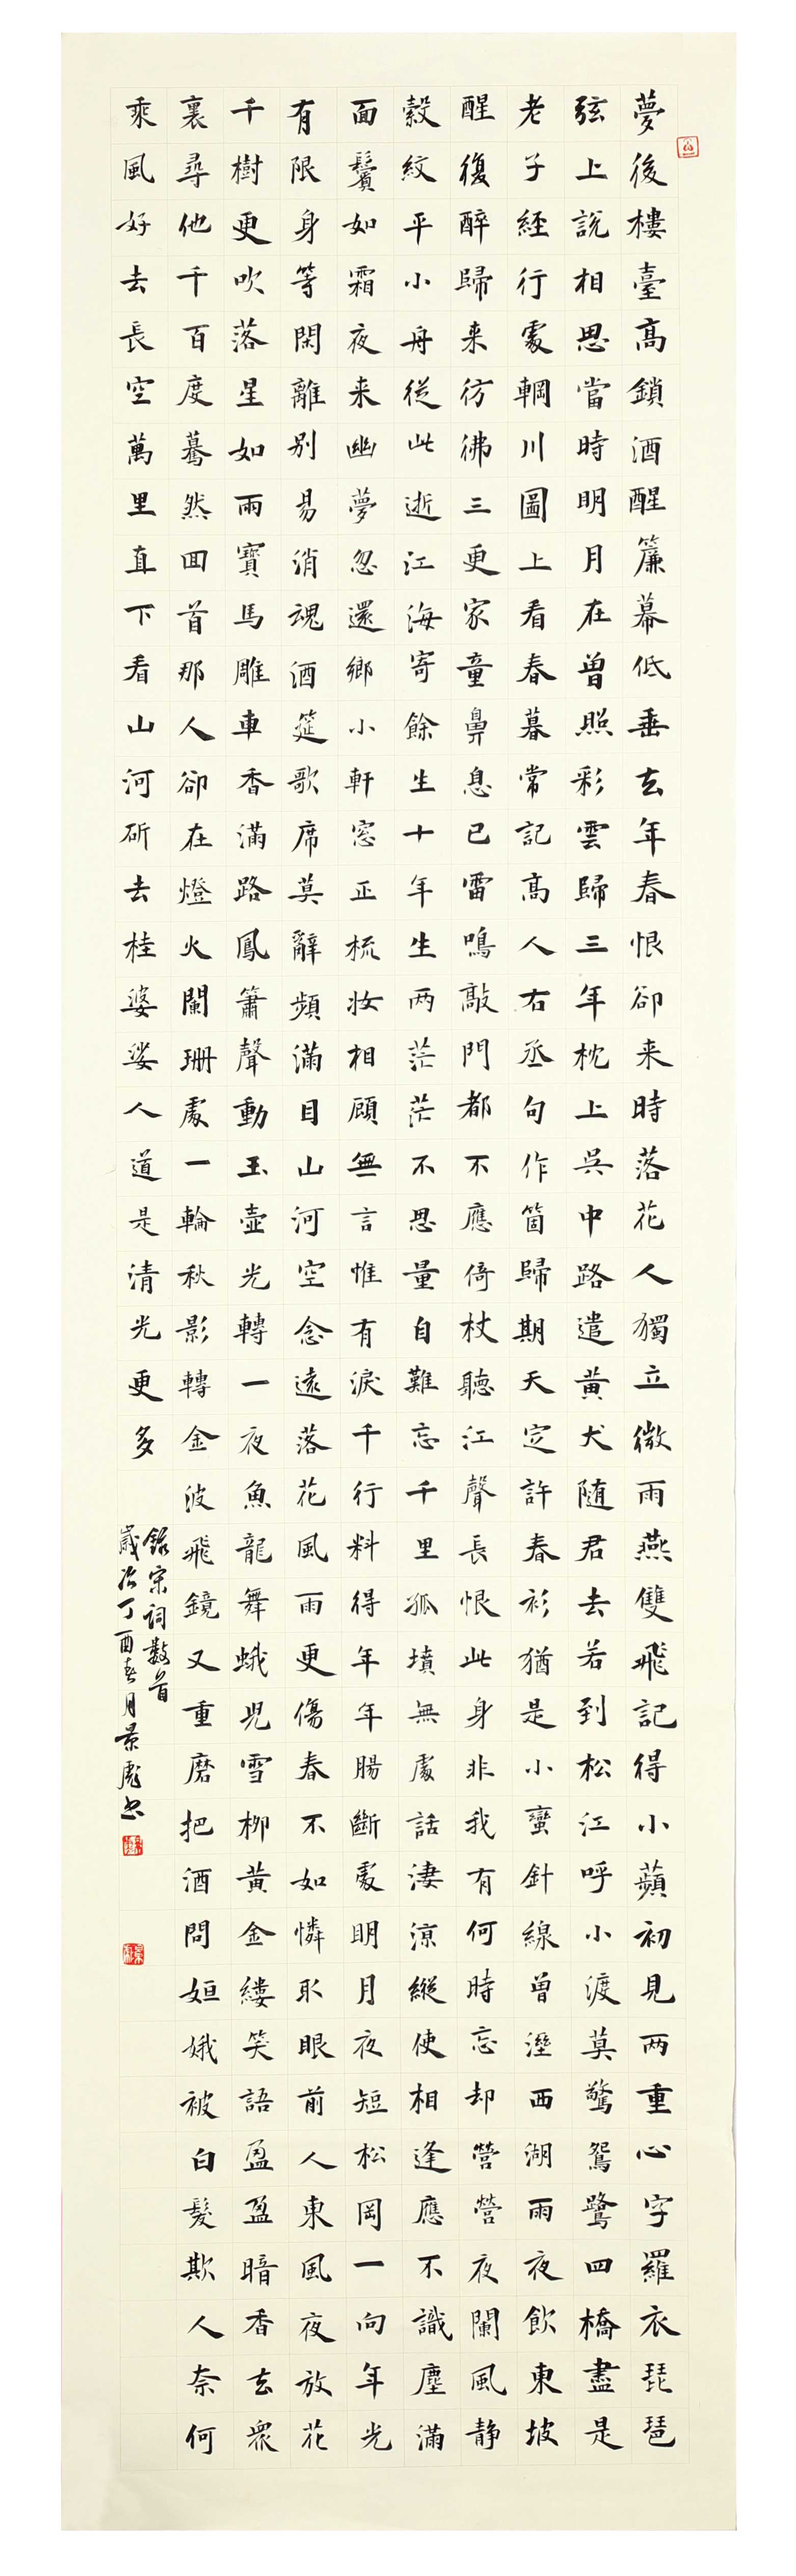 夢後樓臺高鎖酒醒簾幕低垂去年春恨卻来時落花人獨立微雨燕雙飛記得小蘋初見两重心字羅衣琵琶
弦上說相思當時明月在曾照彩雲歸三年枕上吳中路遣黃犬随君去若到松江呼小渡莫驚鴛鷺四橋盡是
老子經行處輞川圖上看春暮常記高人右丞句作箇歸期天定許春衫猶是小蠻針線曾溼西湖雨夜飲東坡
醒復醉歸来彷彿三更家童鼻息已雷鳴敲門都不應倚杖聽江聲長恨此身非我有何時忘却營營夜闌風静
縠紋平小舟從此逝江海寄餘生十年生两茫茫不思量自難忘千里孤墳無處話淒涼縱使相逢應不識塵滿
面鬢如霜夜来幽夢忽還鄉小軒窓正梳妝相顧無言惟有淚千行料得年年腸斷處明月夜短松岡一向年光
有限身等閑離别易消魂酒筵歌席莫辭頻滿目山河空念遠落花風雨更傷春不如憐取眼前人東風夜放花
千樹更吹落星如雨寶馬雕車香滿路鳳簫聲動玉壺光轉一夜魚龍舞蛾兒雪柳黃金縷笑語盈盈暗香去衆
裏尋他千百度驀然回首那人卻在燈火闌珊處一輪秋影轉金波飛鏡又重磨把酒問姮娥被白髮欺人奈何
乘風好去長空萬里直下看山河斫去桂婆娑人道是清光更多
錄宋詞數首
歲次丁酉春月景彪书